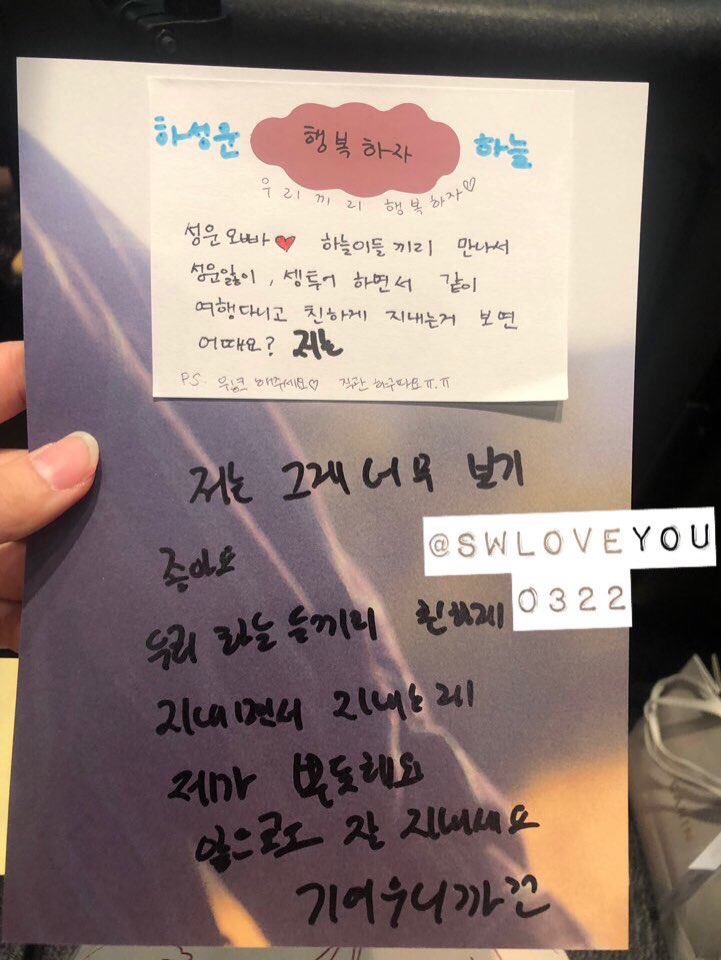 하성운 행복하자 하늘
우리끼리 행복하자♡
성운오빠♥ 하늘이들끼리 만나서
성운앓이, 셍투어 하면서 같이
여행다니고 친하게 지내는거 보면
어때요? 저는
PS. 윙크 해주세요♡ 직관 하구파요ㅠ.ㅠ
저는 그게 너무 보기
좋아요
우리 하늘들끼리 친하게
지내면서 지내는게
제가 뿌듯해요
앞으로도 잘 지내세요
기여우니까
@SWLOVEYOU
0322